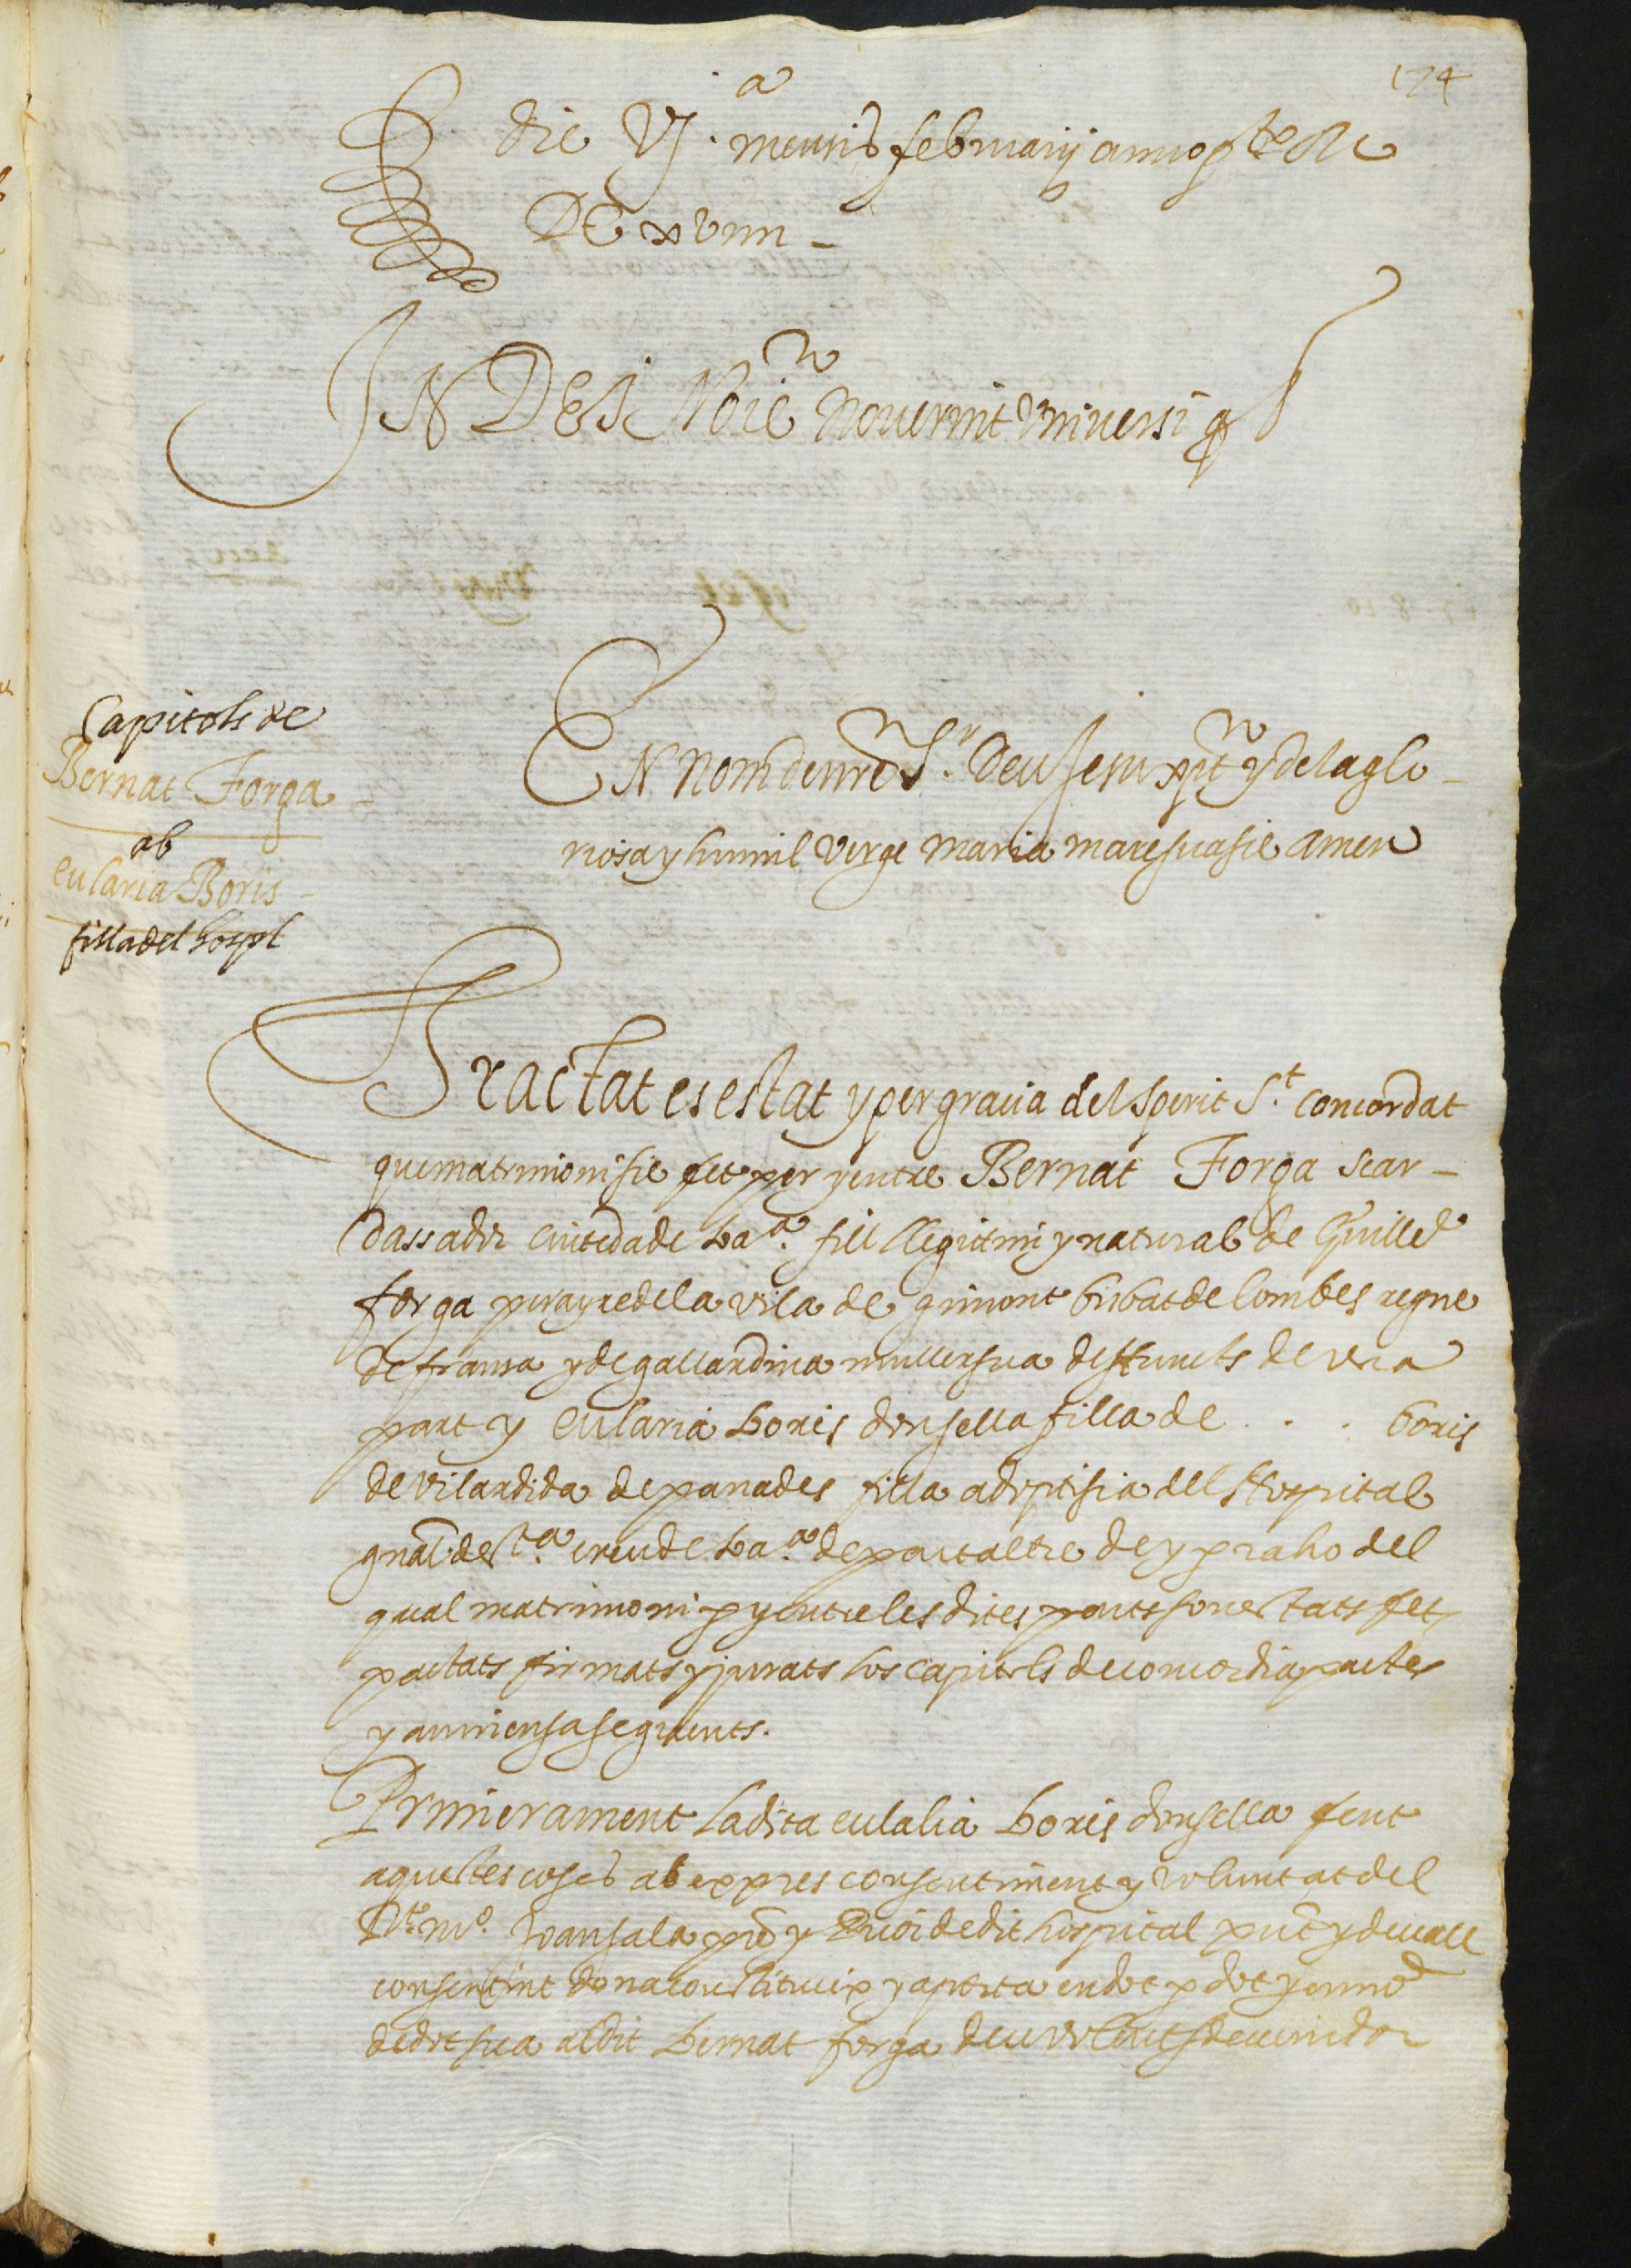 174
Die Vj.ª mensis februarij anno pte dñi
DC xviiii
IN DEI Noie Noverint Universi q
Capitols de
Bernat Forga
ab
eularia Boris
filla del hospl
EN Nom de nre Sr. Deu Jesu xpt y de la glo-
riosa y humil verge maria mare sua sie amen
Tractat es estat y per gracia del sperit St. concordat
que matrimoni sie fet per y entre Bernat Forga scar-
dassador ciutedà de Baª. fill llegittim y natural de Guillē
forga perayre de la vila de gimont bisbat de lombes regne
de fransa y de gallardina muller sua deffuncts de una
part y eularia boris donsella filla de . . . boris
de vilardida de panades filla adoptisia del Hospital
gñal de Stª. creu de Baª. de part altre de y p raho del
qual matrimoni p y entre les dites parts son estats fets
pactats firmats y jurats los capitols de concordia pactes
y avinensa seguents.
Primerament la dita eulalia boris donsella fent
aquestes coses ab expres consentiment y voluntat del
Rt. mº. Joan sala prē y Prior de dit hospital pñt y devall
consentint dona constitueix y aporta en dot p dot y en nō
de dot sua al dit bernat forga deu venidor